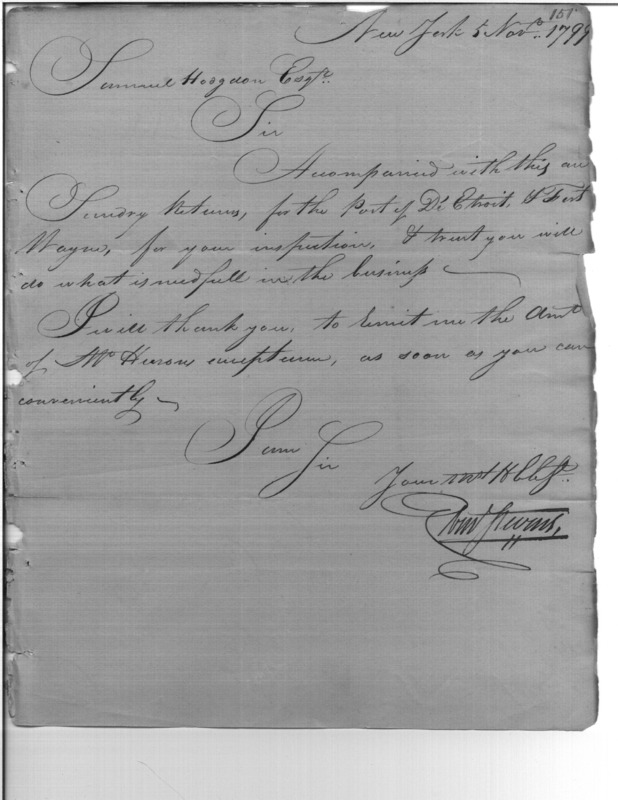 151
New York 5 Novr. 1799
Samuel Hodgdon Esqr.
Sir
Accompanied with this are
Sundry Returns, for the Port of De Etroit, & Fort
Wayne, for your inspection, & trust you will
do what is needfull in the business
I will thank you, to remit me the Amt.
of Mr. Husons exceptence, as soon as you can
conveniently
I am Sir
Your Mot H
Ebenr Stevens,